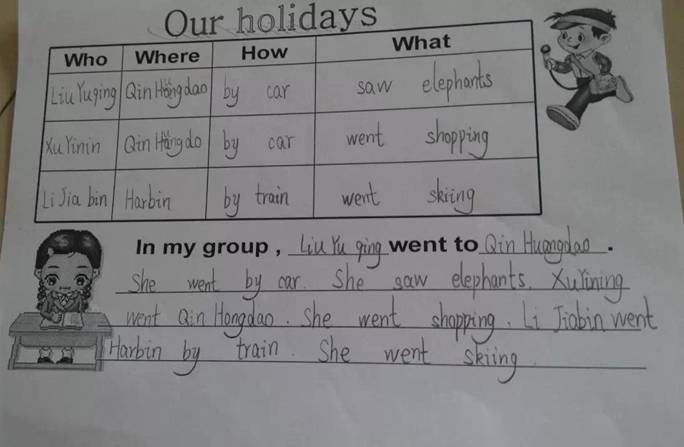 Our holidays
Who Where How What
Liu Yuqing Qin Hongdao by car saw elephants
Xu Yinin Qin Hangdo by car went shopping
Li Jia bin Harbin by train went skiing
In my group , Liu Yu qing went to Qin Huangdao .
She went by car. She saw elephants. Xu Yining
went Qin Hongdao. She went shopping. Li Jiabin went
Harbin by train. She went skiing.